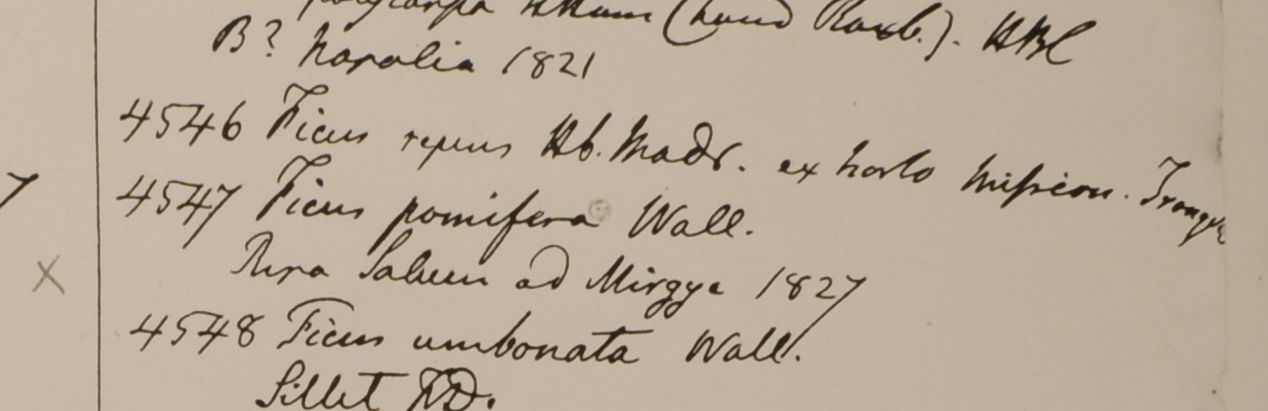 polycarpa (haud Roxb.). HBC
B? Napalia 1821
4546 Ficus repens Hb. Madr. ex horto Mission. Tranqu
7 4547 Ficus pomifera Wall.
X Ripa Saluen ad Mirgye 1827
4548 Ficus umbonata Wall.
Sillet FD.